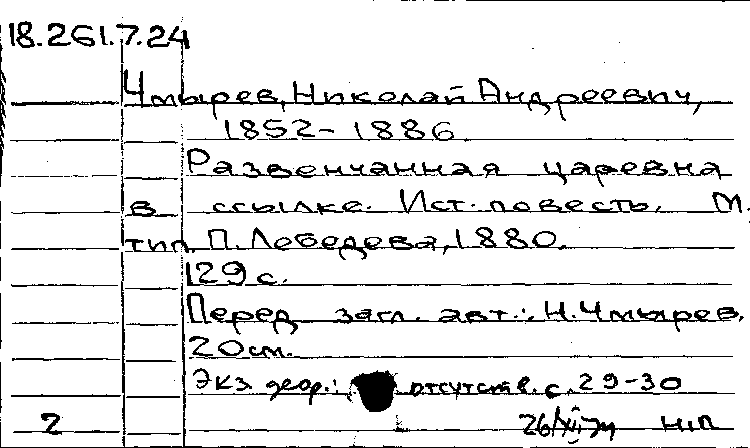 18.261.7.24
Чмырев, Николай Андреевич,
1852-1886
Развенчанная царевна
в ссылке. Ист. повесть. М.,
тип. П. Лебедева, 1880.
129 с.
Перед загл. авт.: Н. Чмырев.
20 см.
Экз. деф.: отсутств. с. 29-30
2 26/XII-74 НП